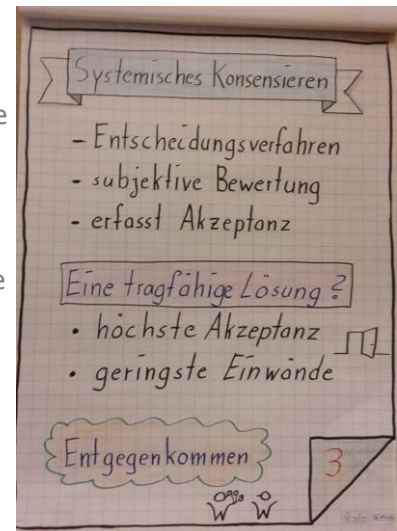 Systemisches Konsensieren
- Entscheidungsverfahren
- subjektive Bewertung
- erfasst Akzeptanz
Eine tragfähige Lösung?
• höchste Akzeptanz
• geringste Einwände
Entgegenkommen
3
e
e